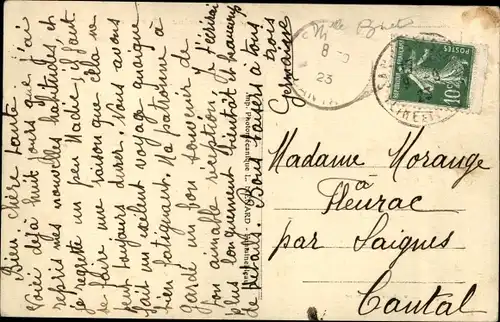 Bien chère tante
Voici déjà huit jours que j'ai
repris mes nouvelles habitudes, et
je regrette un peu Madic; il faut
se faire une raison que cela ne
peut toujours durer. Nous avons
fait un exelent voyage quoique
bien fatiguant. Ma patronne a
gardé un bon souvenir de
ton aimable réception. J'écrirai
plus longuement bientôt et donnerez
de détails. Bons baisers à tous
trois
Germaine
8
23
REPUBLIQUE FRANÇAISE
POSTES
10c
Madame Morange
à
Fleurac
par Saignes
Cantal